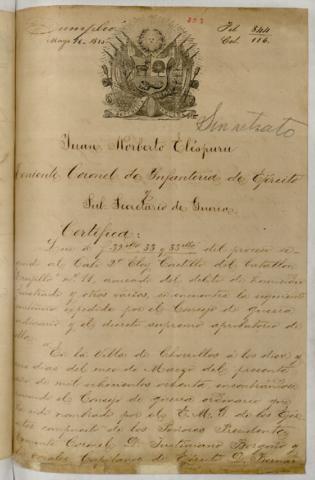 Cumplió
Mayo 16. 1880
Fol 844
Cat. 116.
Sin retrato
Juan Norberto Eléspuru
Teniente Coronel de Infantería de Ejército
y
Sub Secretario de Guerra.
Certifica:
Que á f 32 vlto 33 y 33 vlto del proceso se-
guido al Cabo 2º Eloy Castillo del Batallón
nº 11, acusado del delito de homicidio
frustrado y otros varios, se encuentra la siguiente
expedida por el Consejo de guerra
ordinario y el decreto supremo aprobatorio de
ella.
"En la Villa de Chorrillos á los diez y
dias del mes de Marzo del presente
año de mil ochocientos ochenta encontrándose
el Consejo de guerra ordinario que
ha sido nombrado por el E. M. G. de los Ejér
citos compuesto de los Señores Presidente
Teniente Coronel D. Justiniano Borgoño y
los vocales Capitanes de Ejército D.